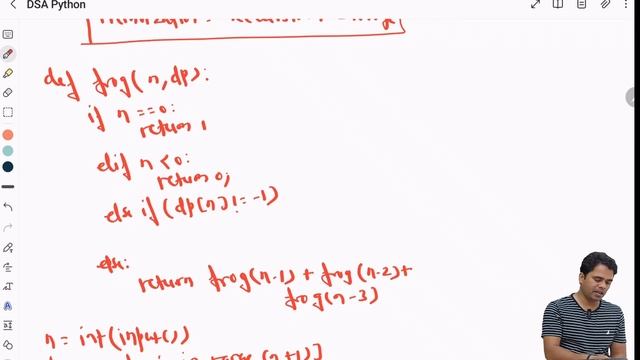 DSA Python
def frog(n,dp):
if n==0:
return 1
elif n<0:
return 0;
else if(dp[n]!=-1)
else:
return frog(n-1) + frog(n-2)+
frog(n-3)
n = int(input())
(n+1)]